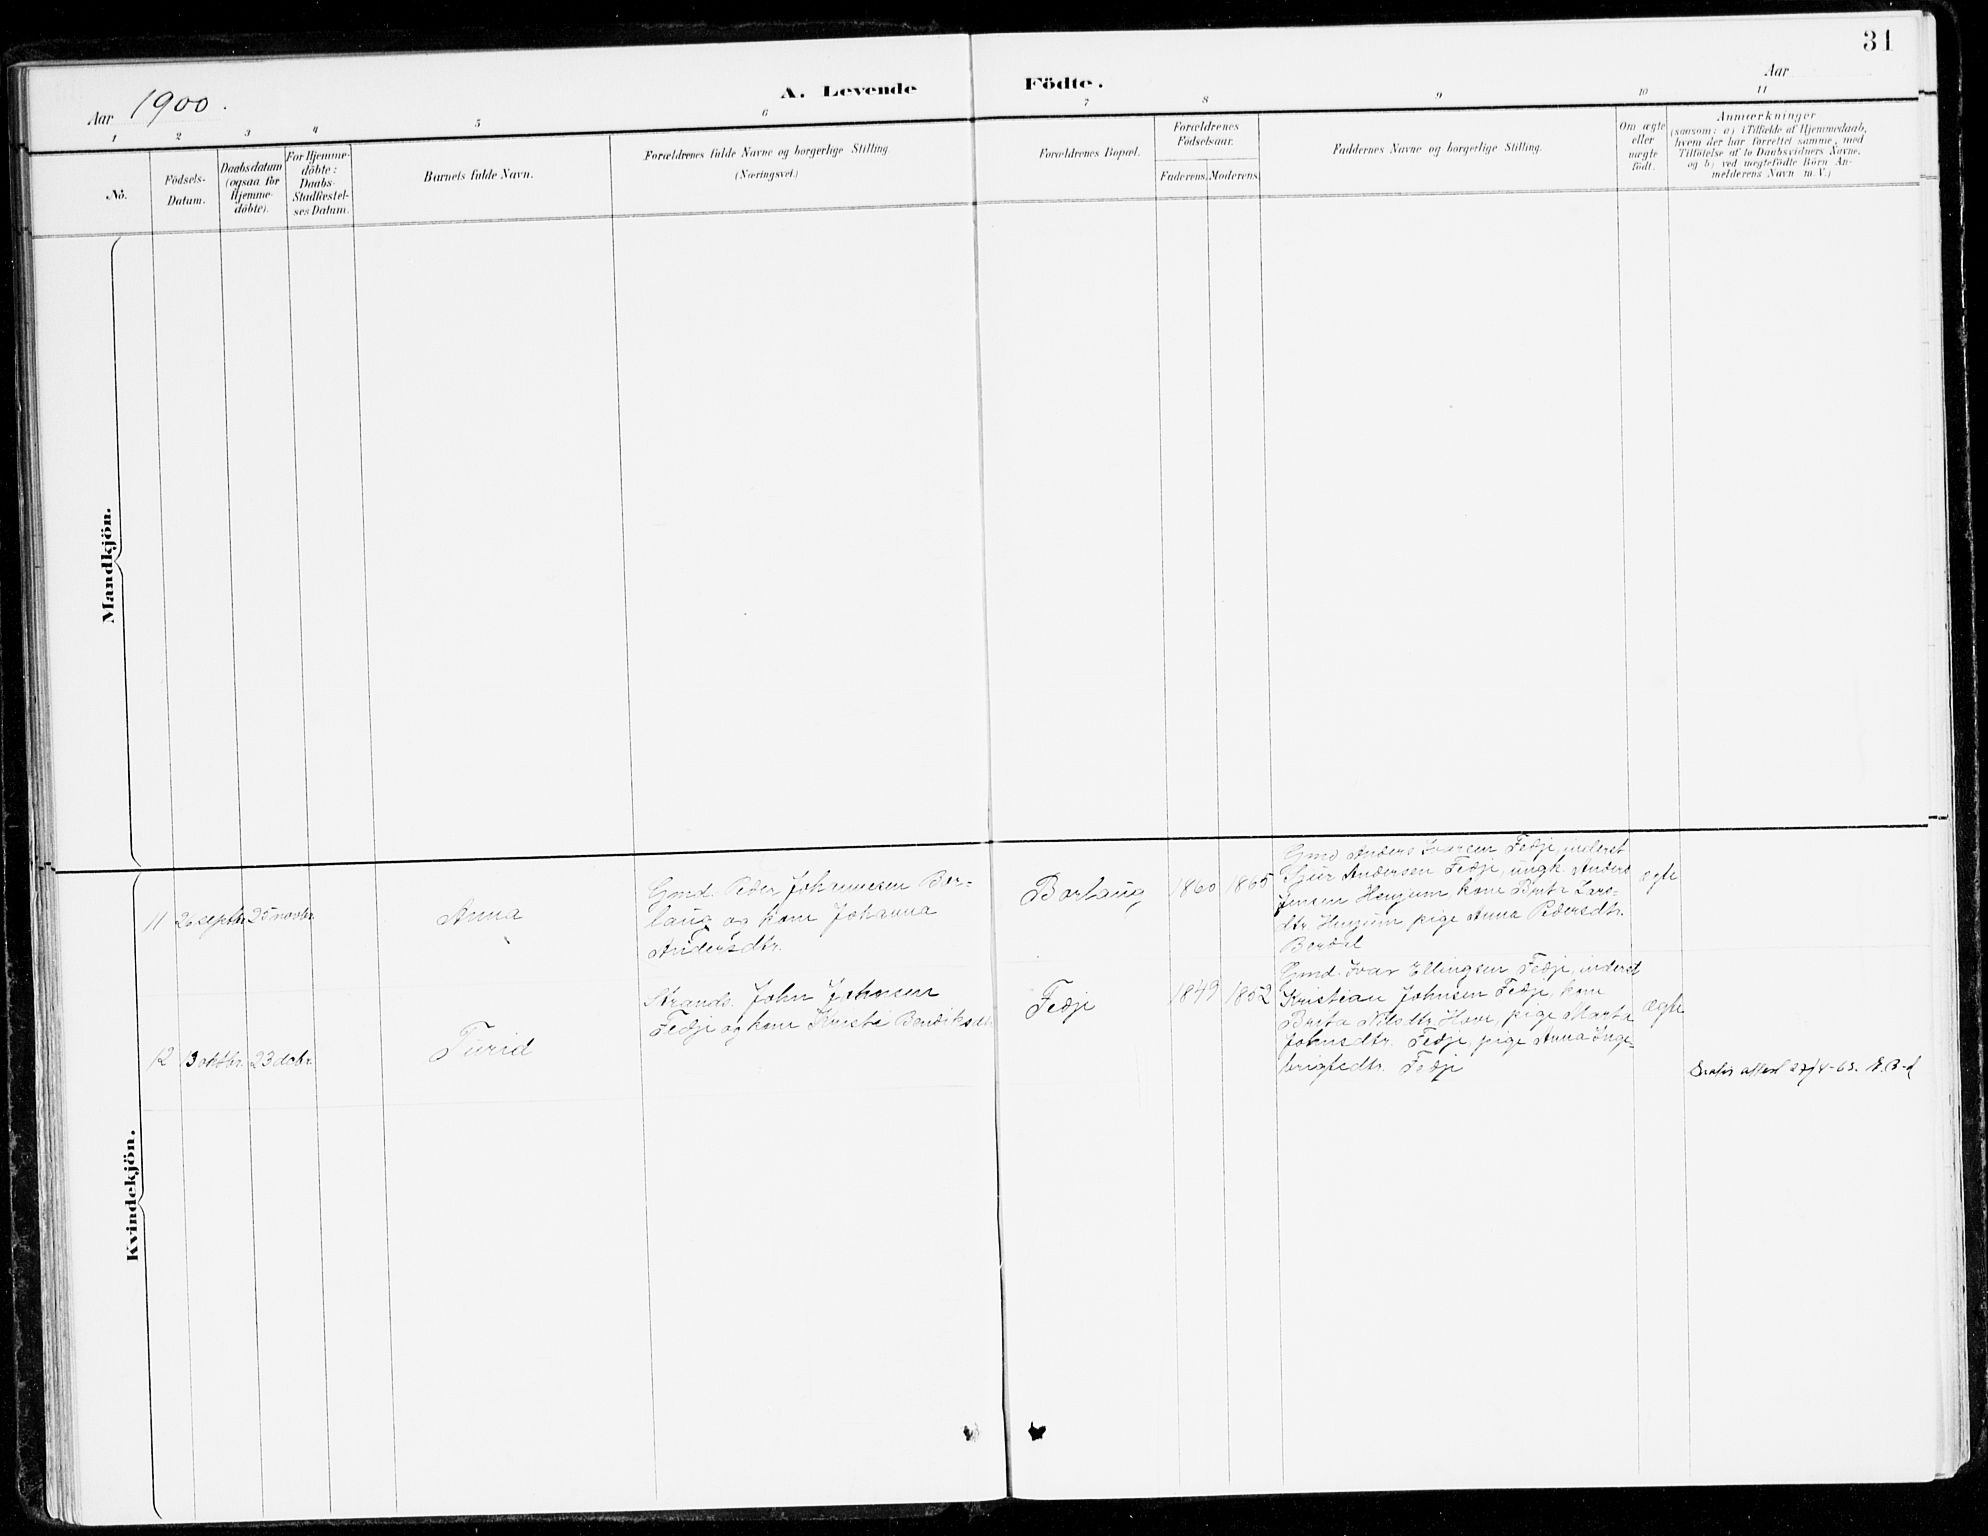 31
Aar 1900.
A. Levende Födte.
Aar
1 2 3 4 5 6 7 8 9 10 11
No.
Födsels-
Datum.
Daabsdatum
(ogsaa for
Hjemme-
döbte).
For Hjemme-
döbte:
Daabs-
Stadfæstel-
ses Datum.
Barnets fulde Navn.
Forældrenes fulde Navne og borgerlige Stilling
(Næringsvei.)
Forældrenes Bopæl.
Forældrenes
Födselsaar.
Faderens. Moderens.
Faddernes Navne og borgerlige Stilling.
Om ægte
eller
uægte
födt.
Anmærkninger
(saasom: a) i Tilfælde af Hjemmedaab,
hvem der har forrettet samme, med
Tilföielse af to Daabsvidners Navne,
og b) ved uægtefödte Börn An-
melderens Navn m. V.)
Mandkjön.
Kvindekjön.
11 26 septbr. 25 novbr.
Anna
Gmd. Peder Johannesen Bor-
laug og kone Johanna
Andersdtr.
Borlaug
1860 1865
Gmd Anders Iversen Fedje, inderst
Sjur Andersen Fedje, ungk. Anders
Jensen Henjum, kone Brita Lars-
dtr. Henjum pige Anna Pedersdtr.
ægte
12 13 oktbr. 23 dcbr.
Turid
Strands. John Johnsen
Fedje og kone Kristi Bendiksdtr
Fedje
1849 1852
Gmd. Ivar Ellingsen Fedje, inderst
Kristian Johnsen Fedje, kone
Brita Nilsdtr. Hove, pige Marta
Johnsdtr. Fedje, pige Anna Inge-
brigtsdtr. Fedje
ægte
attest 27/4-63.